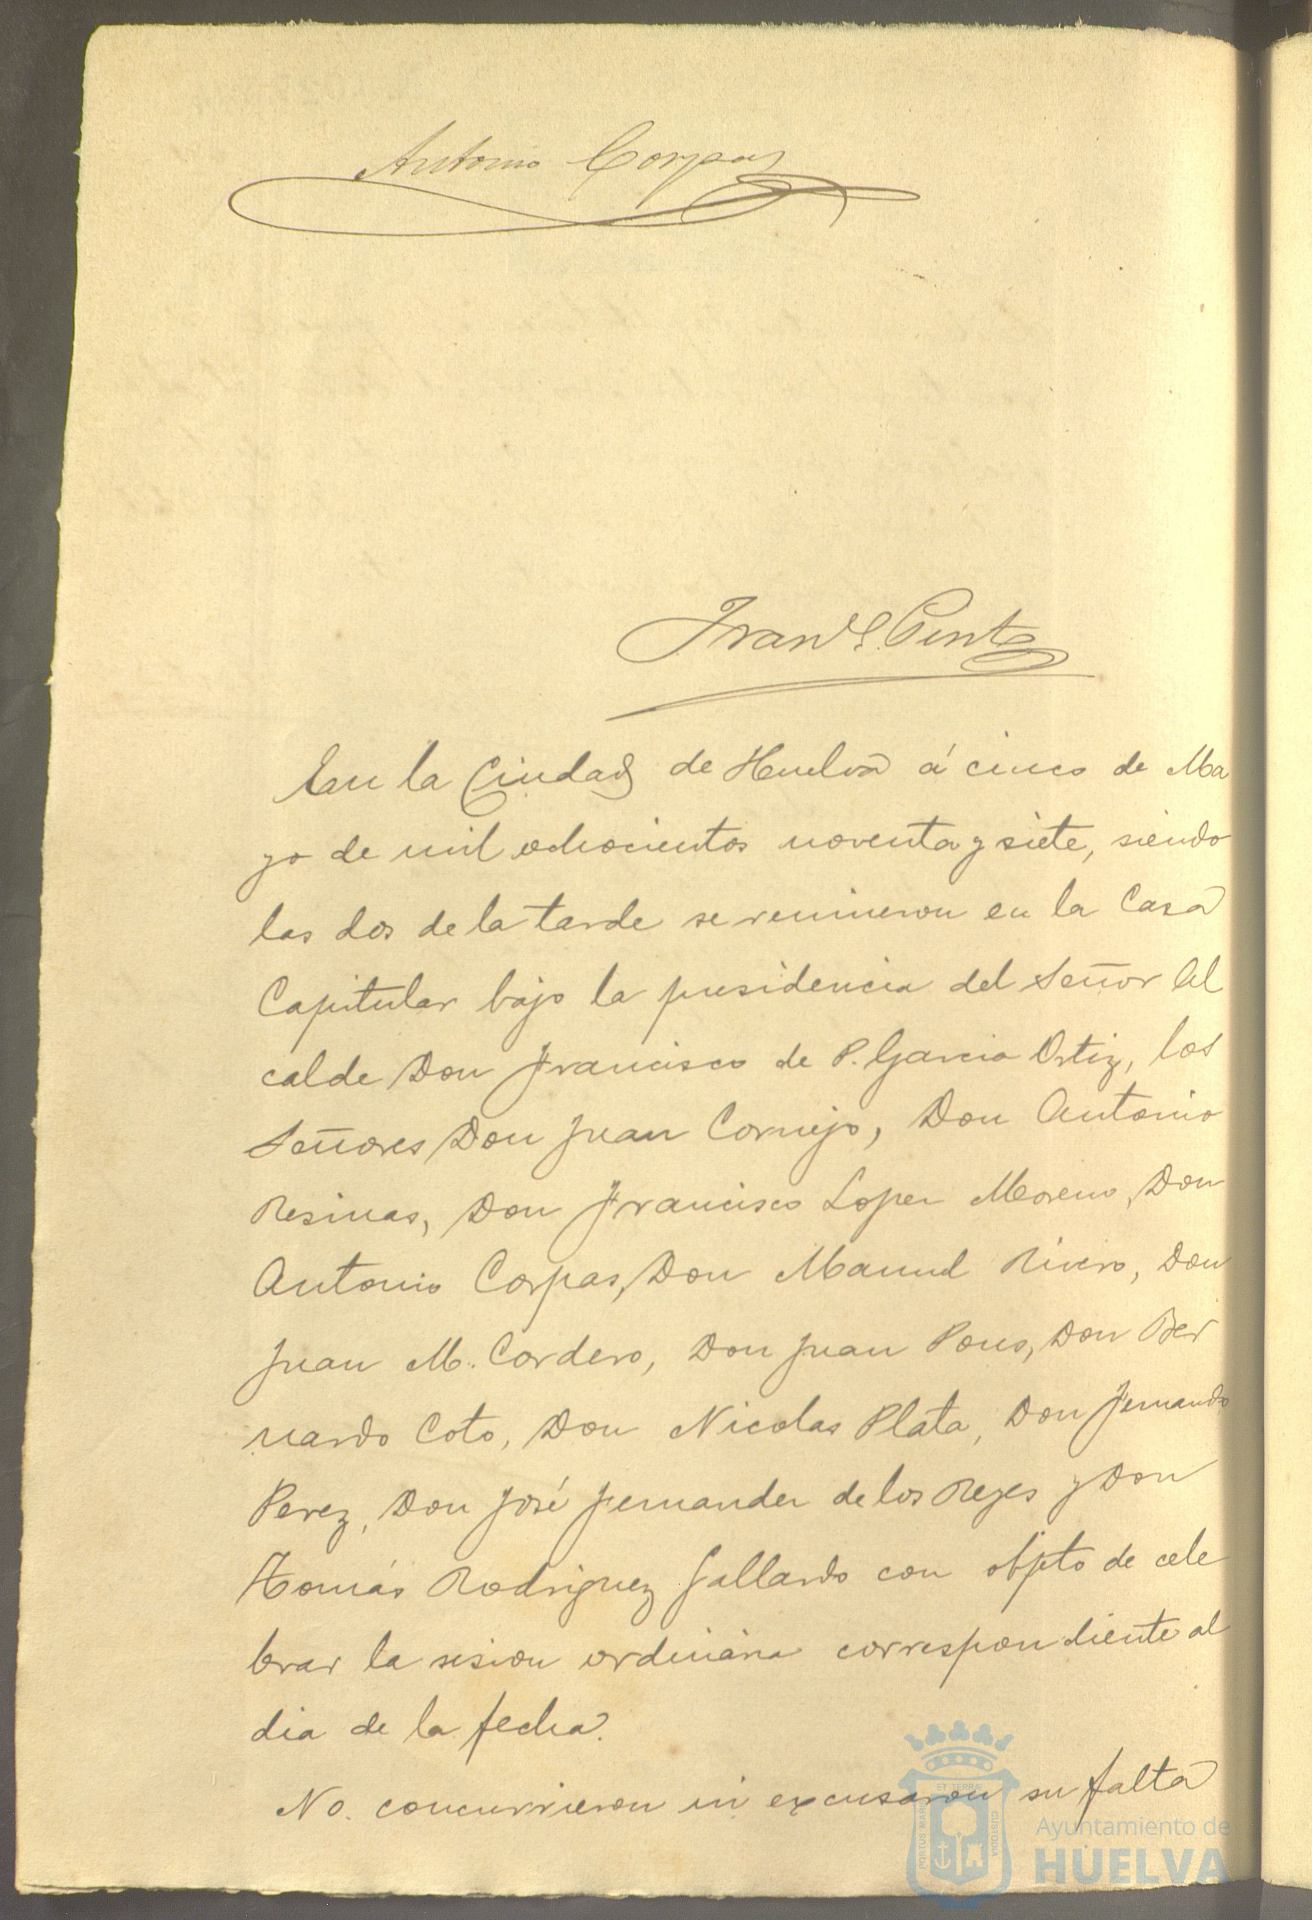 Antonio Corpas
En la Ciudad de Huelva á cinco de Ma
yo de mil ochocientos noventa y siete, siendo
las dos de la tarde se reunieron en la Casa
Capitular bajo la presidencia del Señor Al
calde Don Francisco de P. Garcia Ortiz, los
Señores Don Juan Cornejo, Don Antonio
Resinas, Don Francisco Lopez Moreno, Don
Antonio Corpas, Don Manuel Rivero, Don
Juan M. Cordero, Don Juan Pons, Don Ber
nardo Coto, Don Nicolas Plata, Don Fernando
Perez, Don José Fernandez de los Reyes y Don
Tomás Rodriguez Gallardo con objeto de cele
brar la sesion ordinaria correspondiente al
dia de la fecha.
No. concurrieron ni excusaron su falta
ET TERRAE
PORTUS MARIS
CUSTODIA
Ayuntamiento de
HUELVA